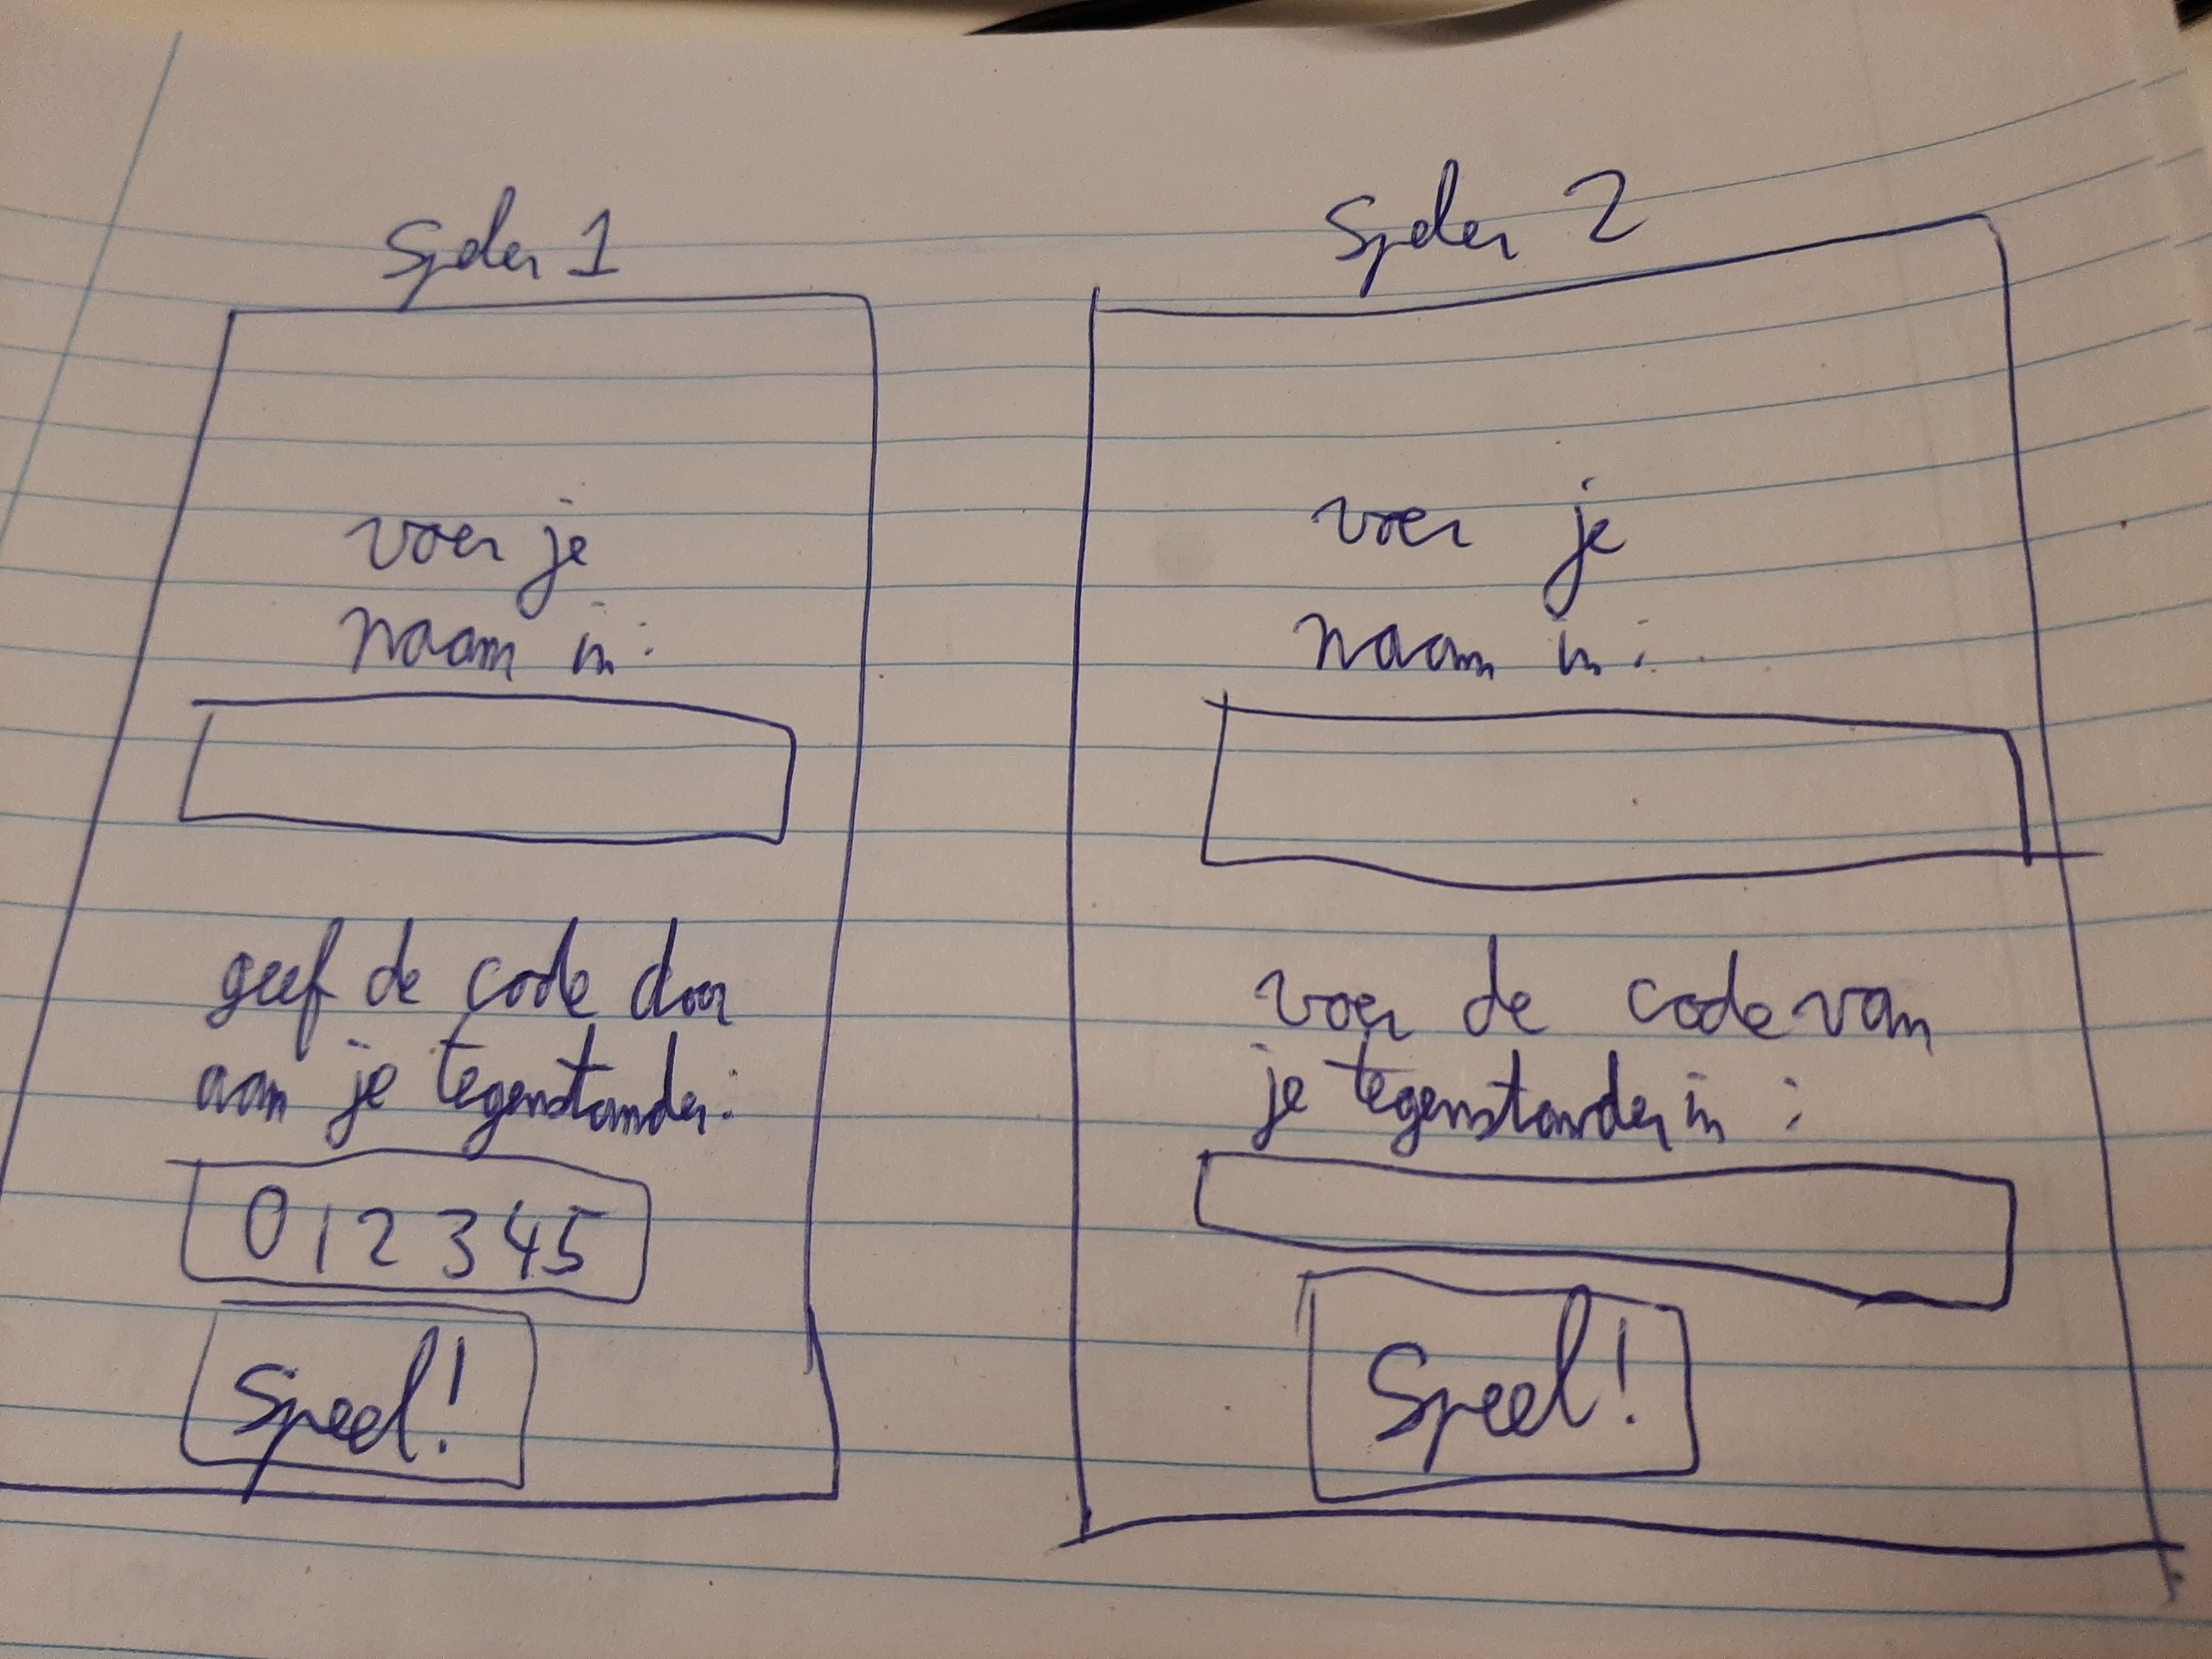 Speler 1
voer je
naam in:
geef de code door
aan je tegenstander:
012345
Speel!
Speler 2
voer je
naam in:
voer de code van
je tegenstander in:
Speel!